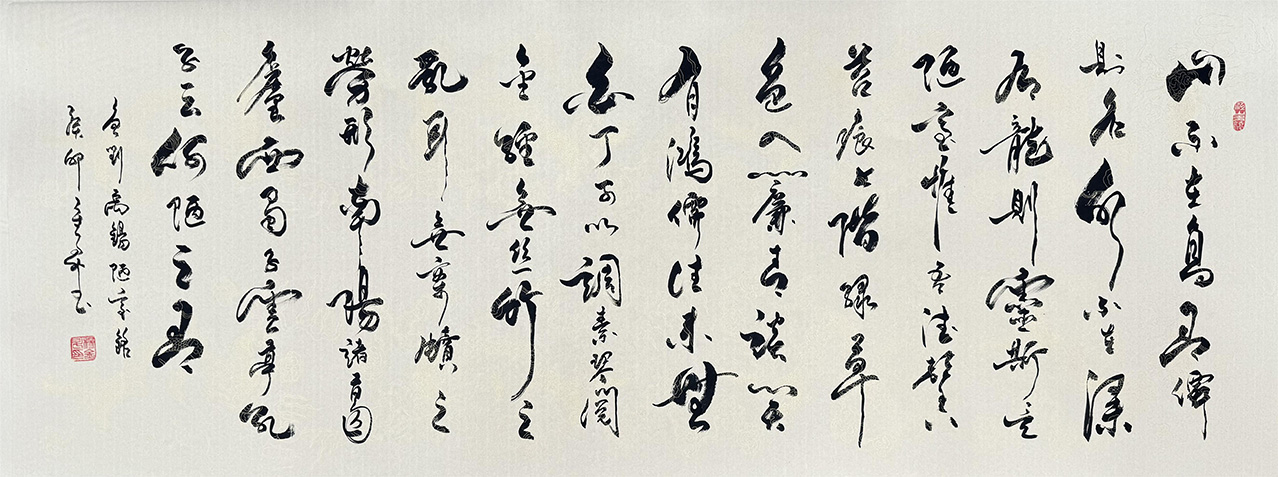 山不在高有僊
則名水不在深
有龍則靈斯是
陋室惟吾德馨
苔痕上階綠草
色入簾青談笑
有鴻儒往來無
白丁可以調素琴閱
金經無絲竹之
亂耳無案牘之
勞形南陽諸葛
廬西蜀子雲亭孔
子云何陋之有
劉禹錫陋室銘
癸卯